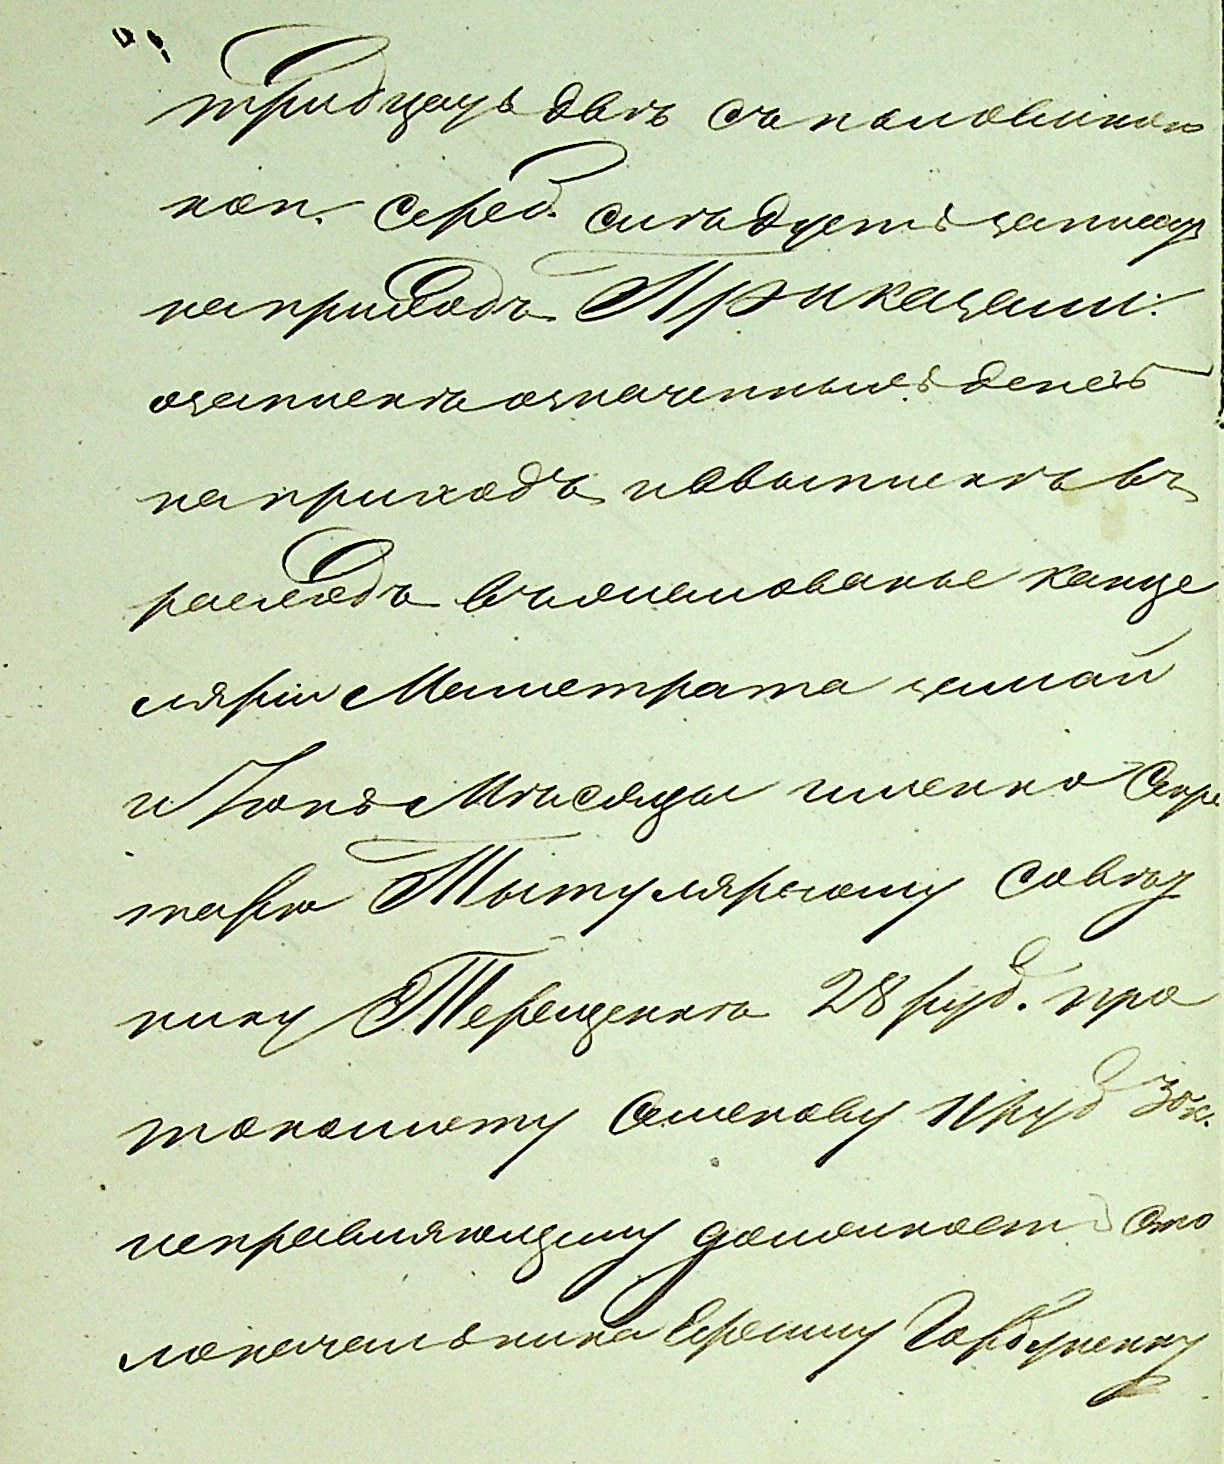 тридцать двѣ съ половиною
коп. сереб. слѣдуетъ записать
на приходъ Приказали:
о запискѣ означенныхъ денегъ
на приходъ и о выпискѣ въ
расходъ въ жалованье канце
ляріи Магистрата за май
и Іюнь Мѣсяцы именно Секре
тарю Тытулярному Совѣт
нику Терещенкѣ 28 руб. про
токолисту Семенову 11 руб 30 к.
исправляющему должность сто
лоначальника Ефрему Горбуненку